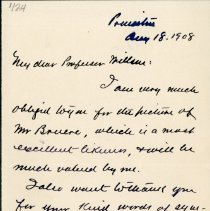 Princeton
Aug 18. 1908
My dear Professor
I am very much
obliged to you for the picture of
Mr which is a most
excellent likeness, & will be
much valued by me.
I also want to thank you
for your kind words of sym-